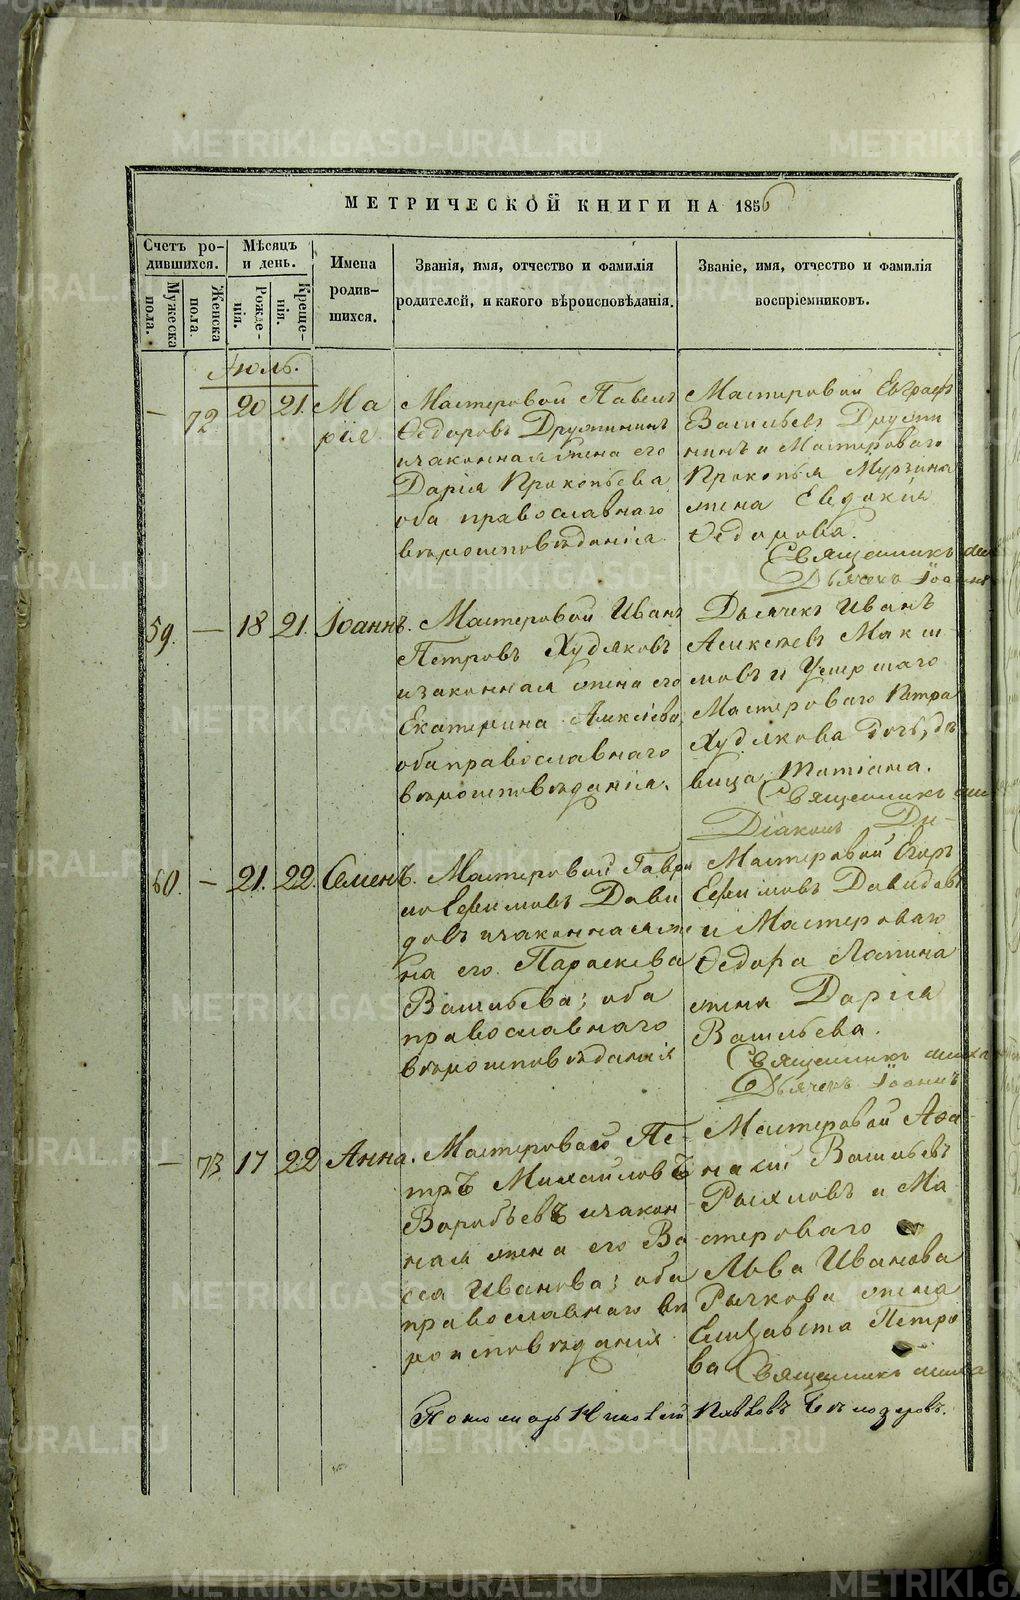 МЕТРИЧЕСКОЙ КНИГИ НА 1856
Счетъ ро-
дившихся.
Мужеска
пола.
Женска
пола.
Мѣсяцъ
и день.
Рожде-
нія.
Креще-
нія.
Имена
родив-
шихся.
Званія, имя, отчество и фамилія
родителей, и какого вѣроисповѣданія.
Званіе, имя, отчество и фамилія
воспріемниковъ.
Іюль.
— 72 20 21. Ма
рія
Мастеровой Павелъ
Ѳедоровъ Дружининъ
и законная жена его
Дарія Прокопьева
оба православнаго
вѣроисповѣданія.
Мастеровой Евграфъ
Васильевъ Дружи
нинъ и Мастероваго
Прокопья Мурзина
жена Евдокія
Ѳедорова.
Священникъ
Дьячекъ Іоаннъ
59. — 18 21. Іоаннъ.
Мастеровой Иванъ
Петровъ Худяковъ
и законная жена его
Екатерина Алексіева,
оба православнаго
вѣроисповѣданія.
Дьячекъ Иванъ
Алексѣевъ Макси
мовъ и Умершаго
Мастероваго Петра
Худякова дочь, дѣ
вица Татіана.
Священникъ
Діаконъ
60. — 21. 22. Семенъ.
Мастеровой Гаври
ло Ефимовъ Дави
довъ и законная же
на его Параскева
Васильева; оба
православнаго
вѣроисповѣданія
Мастеровой Егоръ
Ефимовъ Давидовъ
и Мастероваго
Ѳедора Лапина
жена Дарія
Васильева.
Священникъ Миха
Дьячекъ Іоаннъ
— 73. 17 22 Анна.
Мастеровой Пе-
тръ Михайловъ
Воробьевъ и закон
ная жена его Ва
сса Иванова; оба
православнаго вѣ
роисповѣданія
Мастеровой Аѳа-
насій Васильевъ
и Ма
стероваго
Льва Иванова
Рычкова жена
Елизавета Петро
ва Священникъ Миха
Пономарь Николай